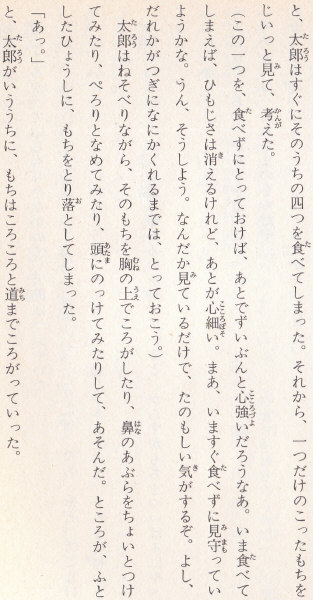 と、太郎はすぐにそのうちの四つを食べてしまった。それから、一つだけのこったもちを
じいっと見て、考えた。
(この一つを、食べずにとっておけば、あとでずいぶんと心強いだろうなあ。いま食べて
しまえば、ひもじさは消えるけれど、あとが心細い。まあ、いますぐ食べずに見守ってい
ようかな。うん、そうしよう。なんだか見ているだけで、たのもしい気がするぞ。よし、
だれかがつぎになにかくれるまでは、とっておこう。)
太郎はねそべりながら、そのもちを胸の上でころがしたり、鼻のあぶらをちょいとつけ
てみたり、ぺろりとなめてみたり、頭にのっけてみたりして、あそんだ。ところが、ふと
したひょうしに、もちをとり落としてしまった。
「あっ。」
と、太郎がいううちに、もちはころころと道までころがっていった。